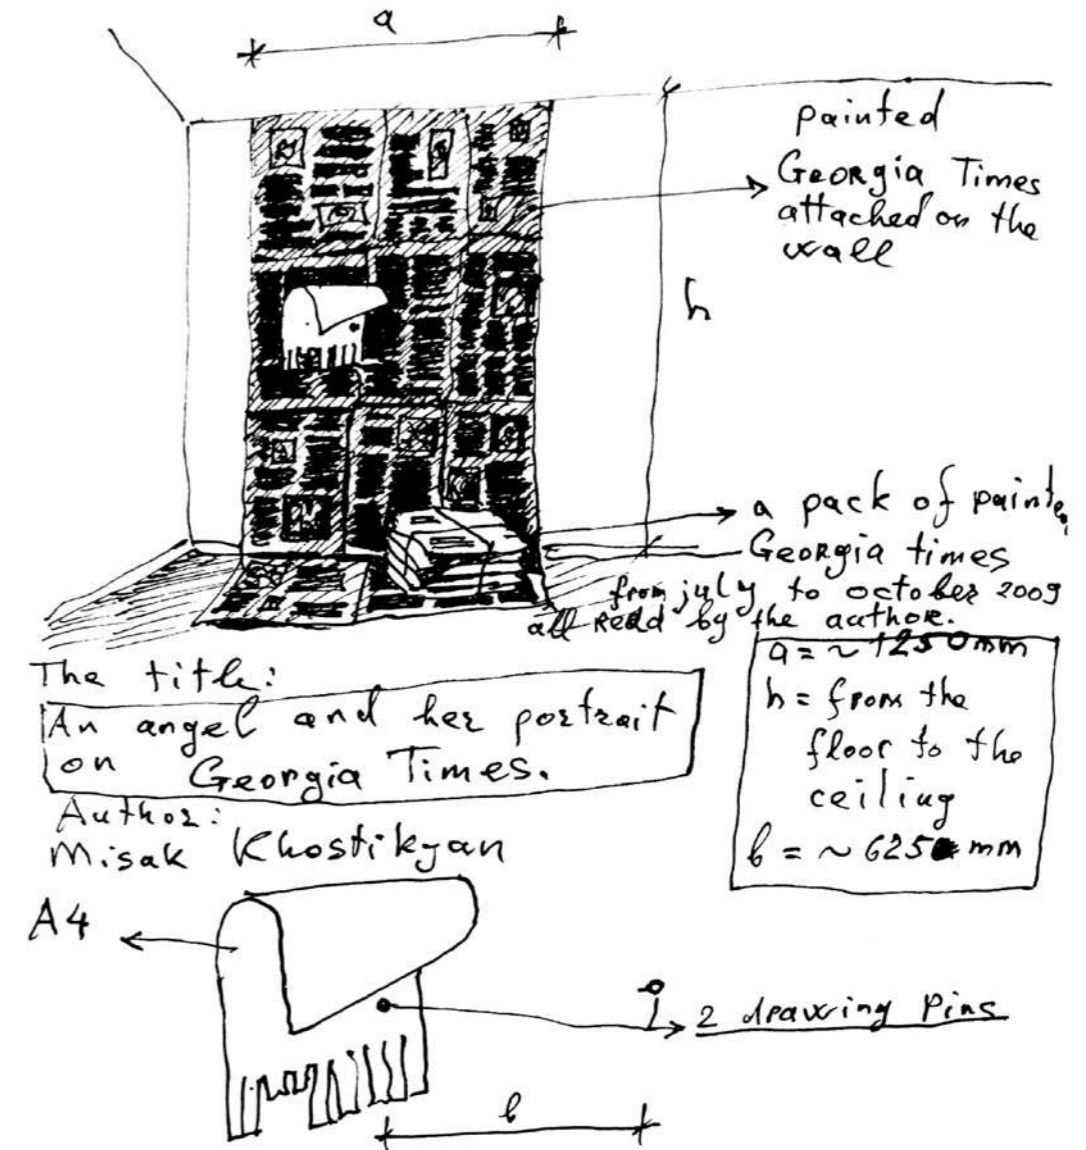 a
painted
Georgia Times
attached on the
wall
h
a pack of painted
Georgia times
from july to october 2009
all read by the author.
a = ~ 1250 mm
h = from the
floor to the
ceiling
b = ~ 625 mm
The title:
An angel and her portrait
on Georgia Times.
Author:
Misak Khostikyan
A4
2 drawing Pins
b